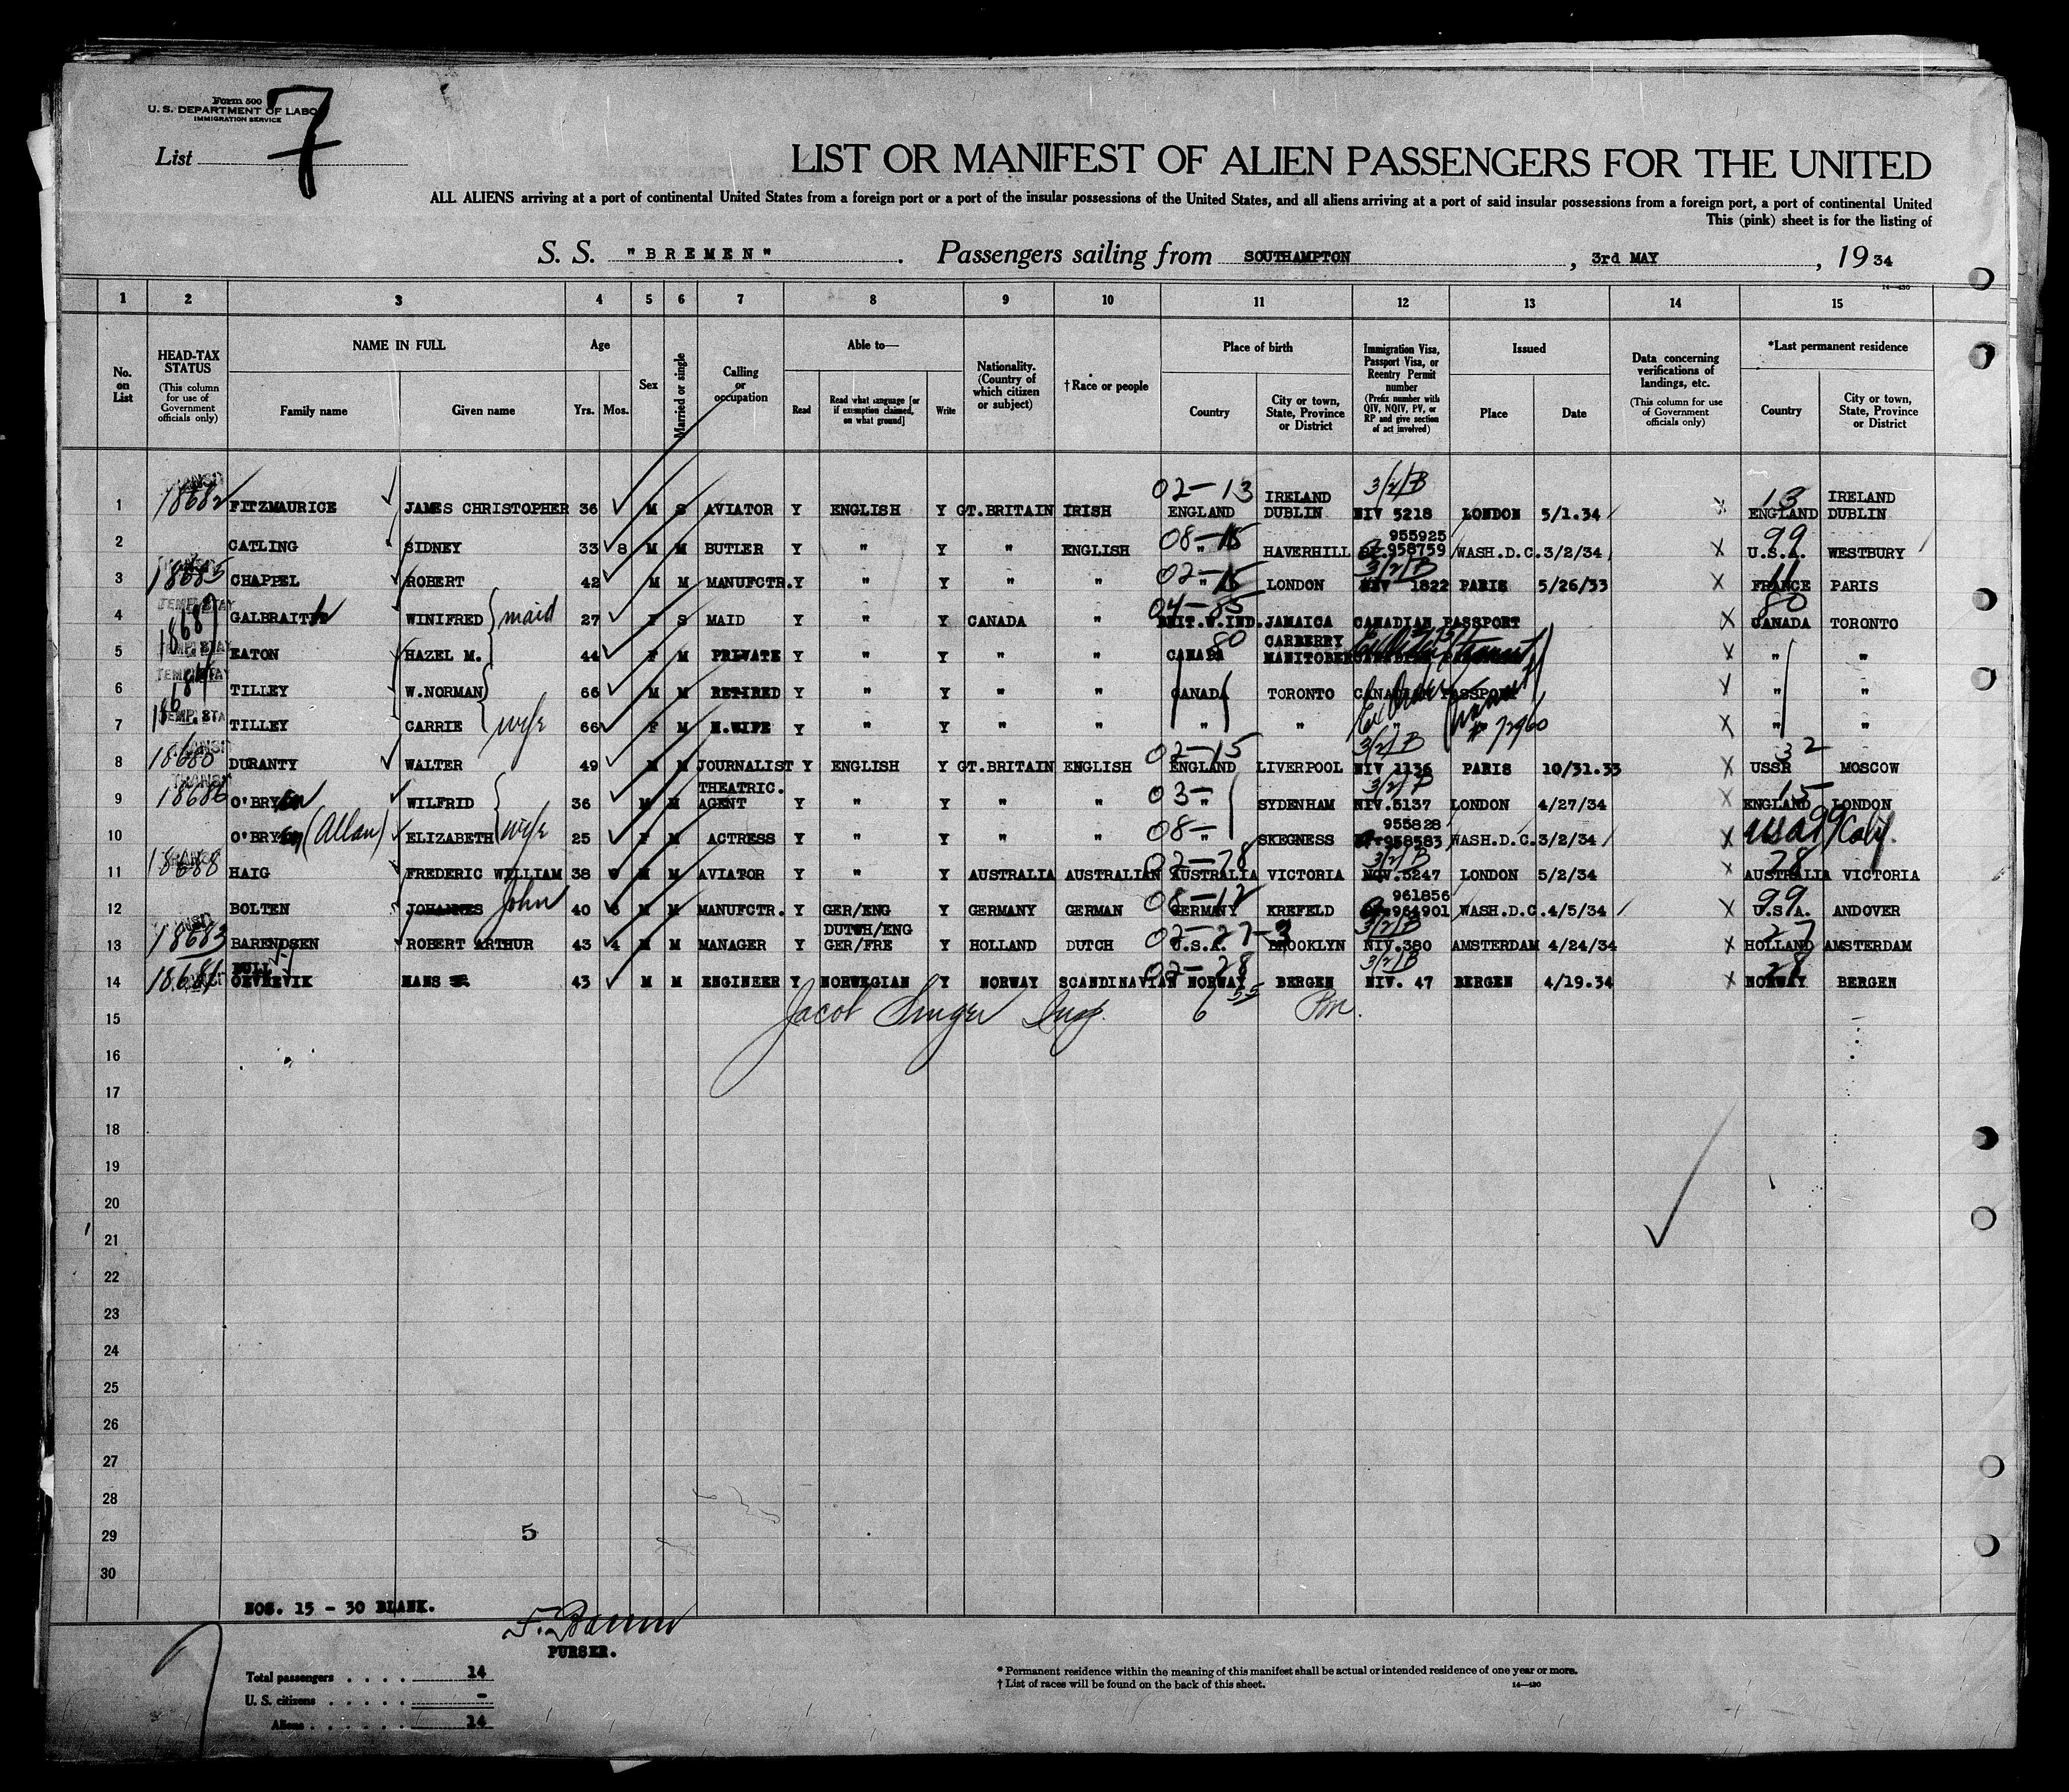 Form 500
U. S. DEPARTMENT OF LABO
IMMIGRATION SERVICE
List 7
LIST OR MANIFEST OF ALIEN PASSENGERS FOR THE UNITED
ALL ALIENS arriving at a port of continental United States from a foreign port or a port of the insular possessions of the United States, and all aliens arriving at a port of said insular possessions from a foreign port, a port of continental United
This (pink) sheet is for the listing of
S. S. "BREMEN". Passengers sailing from SOUTHAMPTON, 3rd MAY, 1934
14—430
1 2 3 4 5 6 7 8 9 10 11 12 13 14 15
No. on List
HEAD-TAX STATUS (This column for use of Government officials only)
NAME IN FULL Family name Given name
Age Yrs. Mos.
Sex
Married or single
Calling or occupation
Able to— Read Read what language [or if exemption claimed, on what ground] Write
Nationality. (Country of which citizen or subject)
†Race or people
Place of birth Country City or town, State, Province or District
Immigration Visa, Passport Visa, or Reentry Permit number (Prefix number with QIV, NQIV, PV, or RP and give section of act involved)
Issued Place Date
Data concerning verifications of landings, etc. (This column for use of Government officials only)
*Last permanent residence Country City or town, State, Province or District
TRANSIT 02—13 IRELAND 3/2/B 13 IRELAND
1 18682 FITZMAURICE JAMES CHRISTOPHER 36 M S AVIATOR Y ENGLISH Y GT.BRITAIN IRISH ENGLAND DUBLIN NIV 5218 LONDON 5/1.34 X ENGLAND DUBLIN
08—15 955925 99
2 CATLING SIDNEY 33 8 M M BUTLER Y " Y " ENGLISH " HAVERHILL 958759 WASH.D.C. 3/2/34 X U.S.A. WESTBURY
02—15 3/2/B 11
3 18685 CHAPPEL ROBERT 42 M M MANUFCTR. Y " Y " " " LONDON NIV 1822 PARIS 5/26/33 X FRANCE PARIS
TEMP. STAY 04—85 80
4 18687 GALBRAITH WINIFRED maid 27 F S MAID Y " Y CANADA " BRIT.W.IND. JAMAICA CANADIAN PASSPORT X CANADA TORONTO
TEMP. STAY 80 CARBERRY
5 EATON HAZEL M. 44 F M PRIVATE Y " Y " " CANADA MANITOBER X " "
TEMP. STAY
6 TILLEY W.NORMAN 66 M M RETIRED Y " Y " " CANADA TORONTO CANADIAN PASSPORT X " "
TEMP. STAY
7 TILLEY CARRIE wife 66 F M H.WIFE Y " Y " " " " " X " "
TRANSIT 02—15 3/2/B 32
8 18680 DURANTY WALTER 49 M M JOURNALIST Y ENGLISH Y GT.BRITAIN ENGLISH ENGLAND LIVERPOOL NIV 1136 PARIS 10/31.33 X USSR MOSCOW
TRANSIT THEATRIC. 03— 3/2/B 15
9 18686 O'BRYEN WILFRID 36 M M AGENT Y " Y " " " SYDENHAM NIV.5137 LONDON 4/27/34 X ENGLAND LONDON
08— 955828 99
10 O'BRYEN (Allan) ELIZABETH wife 25 F M ACTRESS Y " Y " " " SKEGNESS 958583 WASH.D.C. 3/2/34 X USA Calif.
TRANSIT 02—78 3/2/B 78
11 18688 HAIG FREDERIC WILLIAM 38 9 M M AVIATOR Y " Y AUSTRALIA AUSTRALIAN AUSTRALIA VICTORIA NIV.5247 LONDON 5/2/34 X AUSTRALIA VICTORIA
John 08—12 961856 99
12 BOLTEN JOHANNES 40 6 M M MANUFCTR. Y GER/ENG Y GERMANY GERMAN GERMANY KREFELD 964901 WASH.D.C. 4/5/34 X U.S.A. ANDOVER
TRANSIT DUTCH/ENG 02—27 3/2/B 27
13 18683 BARENDSEN ROBERT ARTHUR 43 4 M M MANAGER Y GER/FRE Y HOLLAND DUTCH U.S.A. BROOKLYN NIV.380 AMSTERDAM 4/24/34 X HOLLAND AMSTERDAM
BULL 02—28 3/2/B 28
14 18684 OEVREVIK HANS 43 M M ENGINEER Y NORWEGIAN Y NORWAY SCANDINAVIAN NORWAY BERGEN NIV. 47 BERGEN 4/19.34 X NORWAY BERGEN
15 Jacob Singer Insp. 6 55 Pm.
16
17
18
19
20
21
22
23
24
25
26
27
28
29 5
30
NOS. 15 - 30 BLANK.
PURSER.
Total passengers . . . . 14
U. S. citizens . . . . . -
Aliens . . . . . . 14
* Permanent residence within the meaning of this manifest shall be actual or intended residence of one year or more.
† List of races will be found on the back of this sheet. 14—430